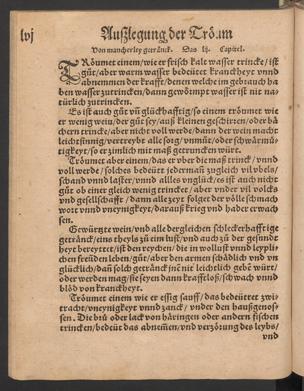 lvj Außlegung der Tröum
Von mancherley getränck. Das lij. Capitel.
TRöumet einem/wie er frisch kalt wasser trincke/ist
güt/aber warm wasser bedeütet kranckheyt vnnd
abnemmen der krafft/denen welche im gebrauch ha
ben wasser zutrincken/dann gewörmpt wasser ist nit na=
türlich zutrincken.
Es ist auch güt vñ glückhafftig/so einem tröumet wie
er wenig wein/der güt sey/auß kleinen geschirren/oder bä
chern trincke/aber nicht voll werde/dann der wein macht
leichtsinnig/vertreybt alle sorg/vnmüt/oder schwärmü=
tigkeyt/so er zimlich mit maß getruncken würt.
Tröumet aber einem/das er vber die maß trinck/vnnd
voll werde/solches bedeütet jedermañ zugleich vil vbels/
schand vnnd laster/vnnd alles vnglück/es ist auch nicht
güt ob einer gleich wenig trincket/aber vnder vil volcks
vnd gesellschafft/dann alle zeyt folget der völle schmach
wort vnnd vneynigkeyt/darauß krieg vnd hader erwach
sen.
Gewürtzte wein/vnd alle dergleichen schleckerhafftige
getränck/eins theyls zü eim lust/vnd auch zü der gesundt
heyt bereyttet/ist den reychen/die in wollust vnnd leypli=
chen freüden leben/güt/aber den armen schädlich vnd vn
glücklich/dañ solch getränck jnẽ nit leichtlich gebẽ würt/
oder werden mag/sie seyen dann kraffeloß/schwach vnnd
blöd von kranckheyt.
Tröumet einem wie er essig sauff/das bedeütet zwi=
tracht/vneynigkeyt vnnd zanck/vnder den haußgenos=
sen. Die brü oder lack von häringen oder andern fischen
trincken/bedeüt das abnemẽn/vnd verzörung des leybs/
vnd